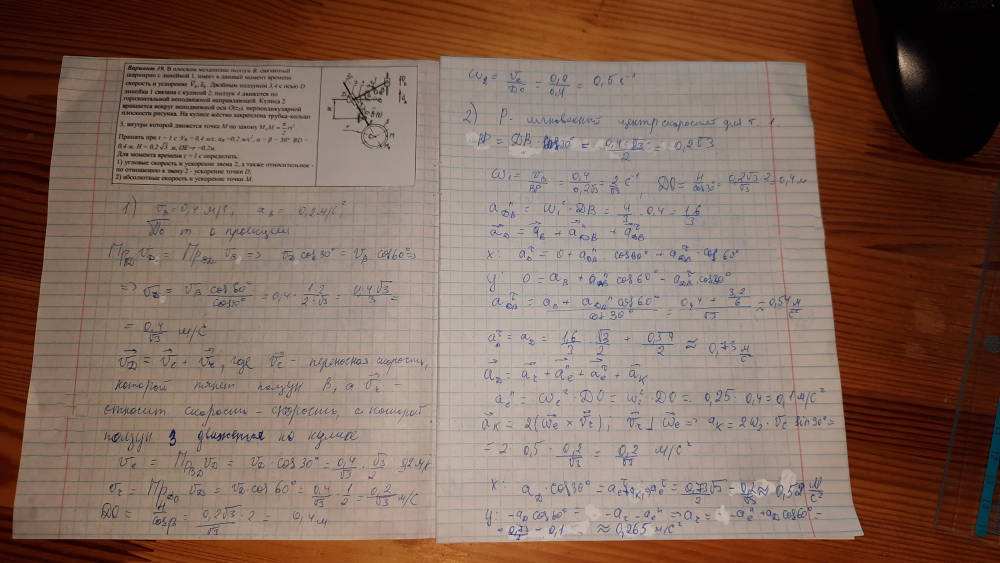 Вариант 18. В плоском механизме ползун B, связанный
шарнирно с линейкой 1, имеет в данный момент времени
скорость и ускорение V̄B, āB. Двойным ползуном 3,4 с осью D
линейка 1 связана с кулисой 2; ползун 4 движется по
горизонтальной неподвижной направляющей. Кулиса 2
вращается вокруг неподвижной оси перпендикулярной
плоскости рисунка. На кулисе жёстко закреплена трубка-кольцо
5, внутри которой движется точка M по закону
Принять при t = 1 с: VB = 0,4 м/с, aB = 0,2 м/с², α = β = 30°, BD =
0,4 м, H = 0,2√3 м, OE=r=0,2м.
Для момента времени t = 1 с определить:
1) угловые скорость и ускорение звена 2, а также относительное -
по отношению к звену 2 - ускорение точки D.
2) абсолютные скорость и ускорение точки M.
1) vB = 0,4 м/с, aB = 0,2 м/с²
По т. о проекции
Пр_BD vD = Пр_BD vB => vD cos30° = vB cos60° =>
=> vD = vB cos60°/cos30° = 0,4 · 1·2/2·√3 = 0,4√3/3 =
= 0,4/√3 м/с
vD = ve + vr, где ve - переносная скорость,
которой ползун B, а vr -
относит скорость - скорость, с которой
ползун 3 движется по кулисе
ve = Пр vD = vD · cos30° = 0,4/√3 · √3/2 = 0,2 м/с
vr = Пр_DO vD = vD · cos60° = 0,4/√3 · 1/2 = 0,2/√3 м/с
DO = H/cosβ = 0,2√3/√3 · 2 = 0,4 м
ω2 = ve/DO = 0,2/0,4 = 0,5 с⁻¹
2) P - мгновенный центр скоростей для т. 1
BP = DB cos30° = 0,4·√3/2 = 0,2√3
ω1 = vB/BP = 0,4/0,2√3 = 2/√3 с⁻¹, DO = H/cos30° = 0,2√3/√3 · 2 = 0,4 м
aⁿDB = ω1² · DB = 4/3 · 0,4 = 1,6/3
aD = aB + aⁿDB + aᵗDB
x: aD = 0 + aⁿDB · cos30° + aᵗDB · cos60°
y: 0 = aB + aⁿDB cos60° - aᵗDB cos30°
aᵗDB = aB + aⁿDB cos60°/cos30° = 0,4 + 3,2/6/√3 ≈ 0,54 м/с²
aD = 1,6/3 · √3/2 + 0,54/2 ≈ 0,73 м/с²
aD = ar + aⁿe + aᵗe + aK
aⁿe = ωe² · DO = ω2² · DO = 0,25 · 0,4 = 0,1 м/с²
aK = 2(ωe × vr); vr ⊥ ωe => aK = 2ω2 · vr sin90° =
= 2 · 0,5 · 0,2/√3 = 0,2/√3 м/с²
x: aD · cos30° = aᵗe + aK => aᵗe = 0,73√3/2 - 0,2/√3 ≈ 0,52 м/с²
y: -aD cos60° = -ar - aⁿe => ar = -aⁿe + aD cos60° =
= 0,73/2 - 0,1 ≈ 0,265 м/с²